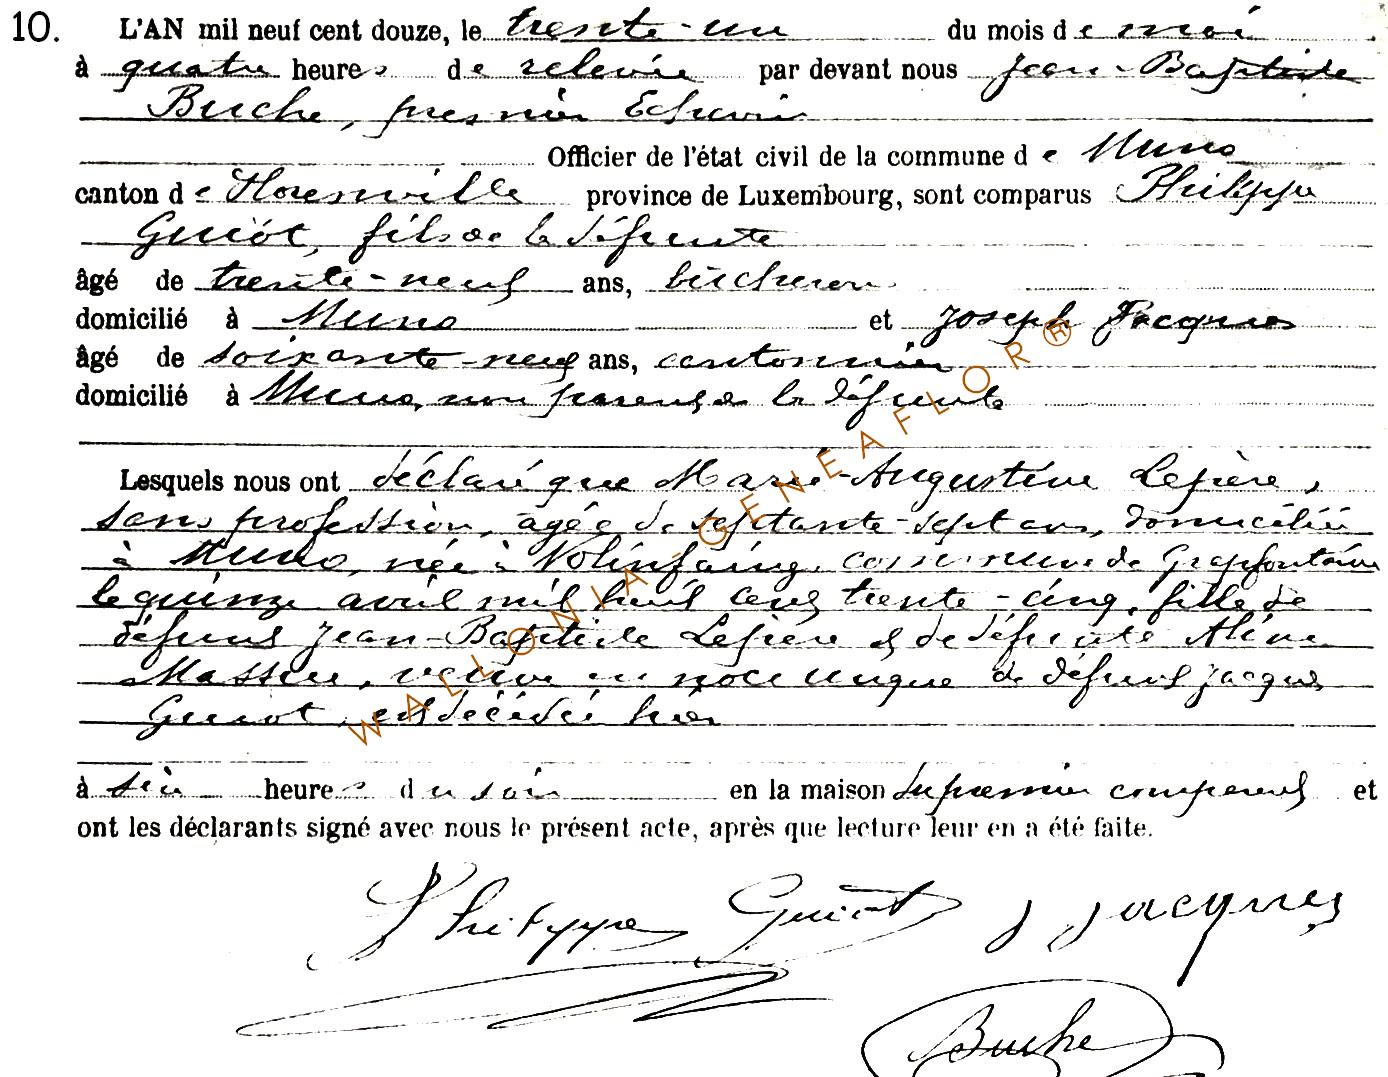 10. L'AN mil neuf cent douze, le trente-un du mois de mai
à quatre heures de relevée par devant nous Jean-Baptiste
Buche, premier Echevin
Officier de l'état civil de la commune de Muno
canton de Florenville province de Luxembourg, sont comparus Philippe
Guiot, fils de la défunte
âgé de trente-neuf ans, bûcheron
domicilié à Muno et Joseph Jacques
âgé de soixante-neuf ans, cantonnier
domicilié à Muno, non parent de la défunte
Lesquels nous ont déclaré que Marie-Augustine Lefière,
sans profession, âgée de septante-sept ans, domiciliée
à Muno, née à Volinfaing commune de Grapfontaine
le quinze avril mil huit cent trente-cinq, fille de
défunt Jean-Baptiste Lefière et de défunte Aline
Massiu, veuve en noce unique de défunt Jacques
Guiot, est décédée hier
à six heures du soir en la maison du premier comparant et
ont les déclarants signé avec nous le présent acte, après que lecture leur en a été faite.
Philippe Guiot J Jacques
Buche
WALLONIA-GENEAFLOR®